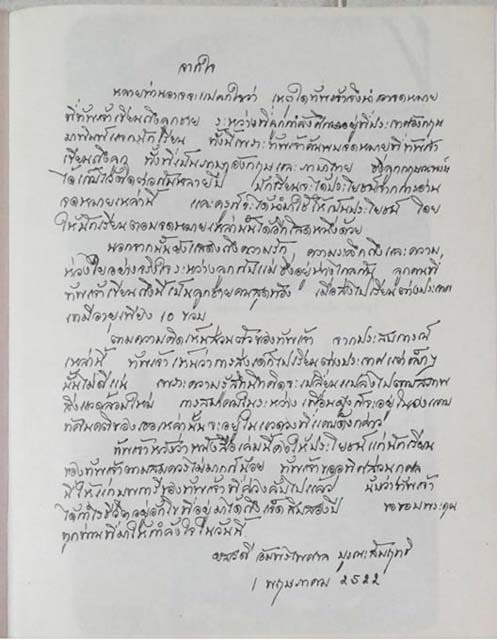 จากใจ
หลายท่านอาจจะแปลกใจว่า เหตุใดข้าพเจ้าจึงนำเอาจดหมาย
ที่ข้าพเจ้าเขียนถึงลูกชาย ระหว่างที่ลูกกำลังศึกษาอยู่ที่ประเทศอังกฤษ
มาพิมพ์แจกนักเรียน ทั้งนี้เพราะข้าพเจ้าค้นพบจดหมายที่ข้าพเจ้า
เขียนถึงลูก ทั้งที่เป็นภาษาอังกฤษและภาษาไทย ซึ่งลูก
ได้เก็บไว้ หลายปี นักเรียนจะได้ประโยชน์จากการอ่าน
จดหมายเหล่านี้ และคงจะได้นำมาใช้ให้เป็นประโยชน์ โดย
ให้นักเรียนตอบจดหมายเหล่านั้นได้อีกโสดหนึ่งด้วย
นอกจากนั้นยังแสดงถึงความรัก, ความระลึกถึงและความ
ห่วงใยอย่างจริงใจ ระหว่างลูกกับแม่ ซึ่งอยู่ห่างไกลกัน ลูกคนที่
ข้าพเจ้าเขียนถึงนี้เป็นลูกชายคนสุดท้อง เมื่อส่งไปเรียนต่างประเทศ
เขามีอายุเพียง 10 ขวบ
ตามความคิดเห็นส่วนตัวของข้าพเจ้า จากประสบการณ์
เหล่านี้ ข้าพเจ้าเห็นว่าการส่งเด็กไปเรียนต่างประเทศแต่เล็กๆ
นั้นไม่ดีแน่ เพราะความรู้สึกนึกคิดจะเปลี่ยนแปลงไปตามสภาพ
สิ่งแวดล้อมใหม่ การสมาคมในระหว่างเพื่อนฝูงก็จะอยู่ในวงแคบ
ทัศนคติของเธอเหล่านั้นจะอยู่ในแวดวงที่แคบดังกล่าว
ข้าพเจ้าหวังว่าหนังสือเล่มนี้คงให้ประโยชน์แก่นักเรียน
ของข้าพเจ้าตามสมควรไม่มากก็น้อย ข้าพเจ้าขออุทิศส่วนกุศล
นี้ให้แก่ ของข้าพเจ้าที่ล่วงลับไปแล้ว นับว่าข้าพเจ้า
ได้ ชีวิต ที่อยู่มาได้ถึงเจ็ดสิบสองปี ขอขอบพระคุณ
ทุกท่านที่มาให้กำลังใจในวันนี้
บุรณะสัมฤทธิ
1 พฤษภาคม 2522